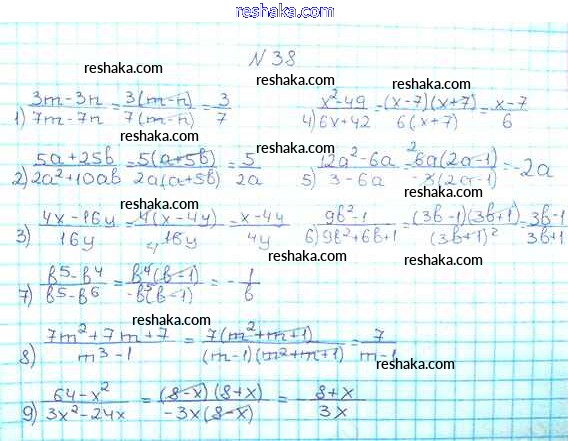 reshaka.com
№38
reshaka.com
reshaka.com
1) (3m-3n)/(7m-7n) = (3(m-n))/(7(m-n)) = 3/7 4) (x²-49)/(6x+42) = ((x-7)(x+7))/(6(x+7)) = (x-7)/6
reshaka.com
reshaka.com
2) (5a+25b)/(2a²+10ab) = (5(a+5b))/(2a(a+5b)) = 5/(2a) 5) (12a²-6a)/(3-6a) = (²6a(2a-1))/(-3(2a-1)) = -2a
reshaka.com
reshaka.com
3) (4x-16y)/(16y) = (4(x-4y))/(₄16y) = (x-4y)/(4y) 6) (9b²-1)/(9b²+6b+1) = ((3b-1)(3b+1))/((3b+1)²) = (3b-1)/(3b+1)
reshaka.com
reshaka.com
7) (b⁵-b⁴)/(b⁵-b⁶) = (b⁴(b-1))/(-b⁵(b-1)) = -1/b
reshaka.com
8) (7m²+7m+7)/(m³-1) = (7(m²+m+1))/((m-1)(m²+m+1)) = 7/(m-1)
reshaka.com
9) (64-x²)/(3x²-24x) = ((8-x)(8+x))/(-3x(8-x)) = -(8+x)/(3x)
reshaka.com